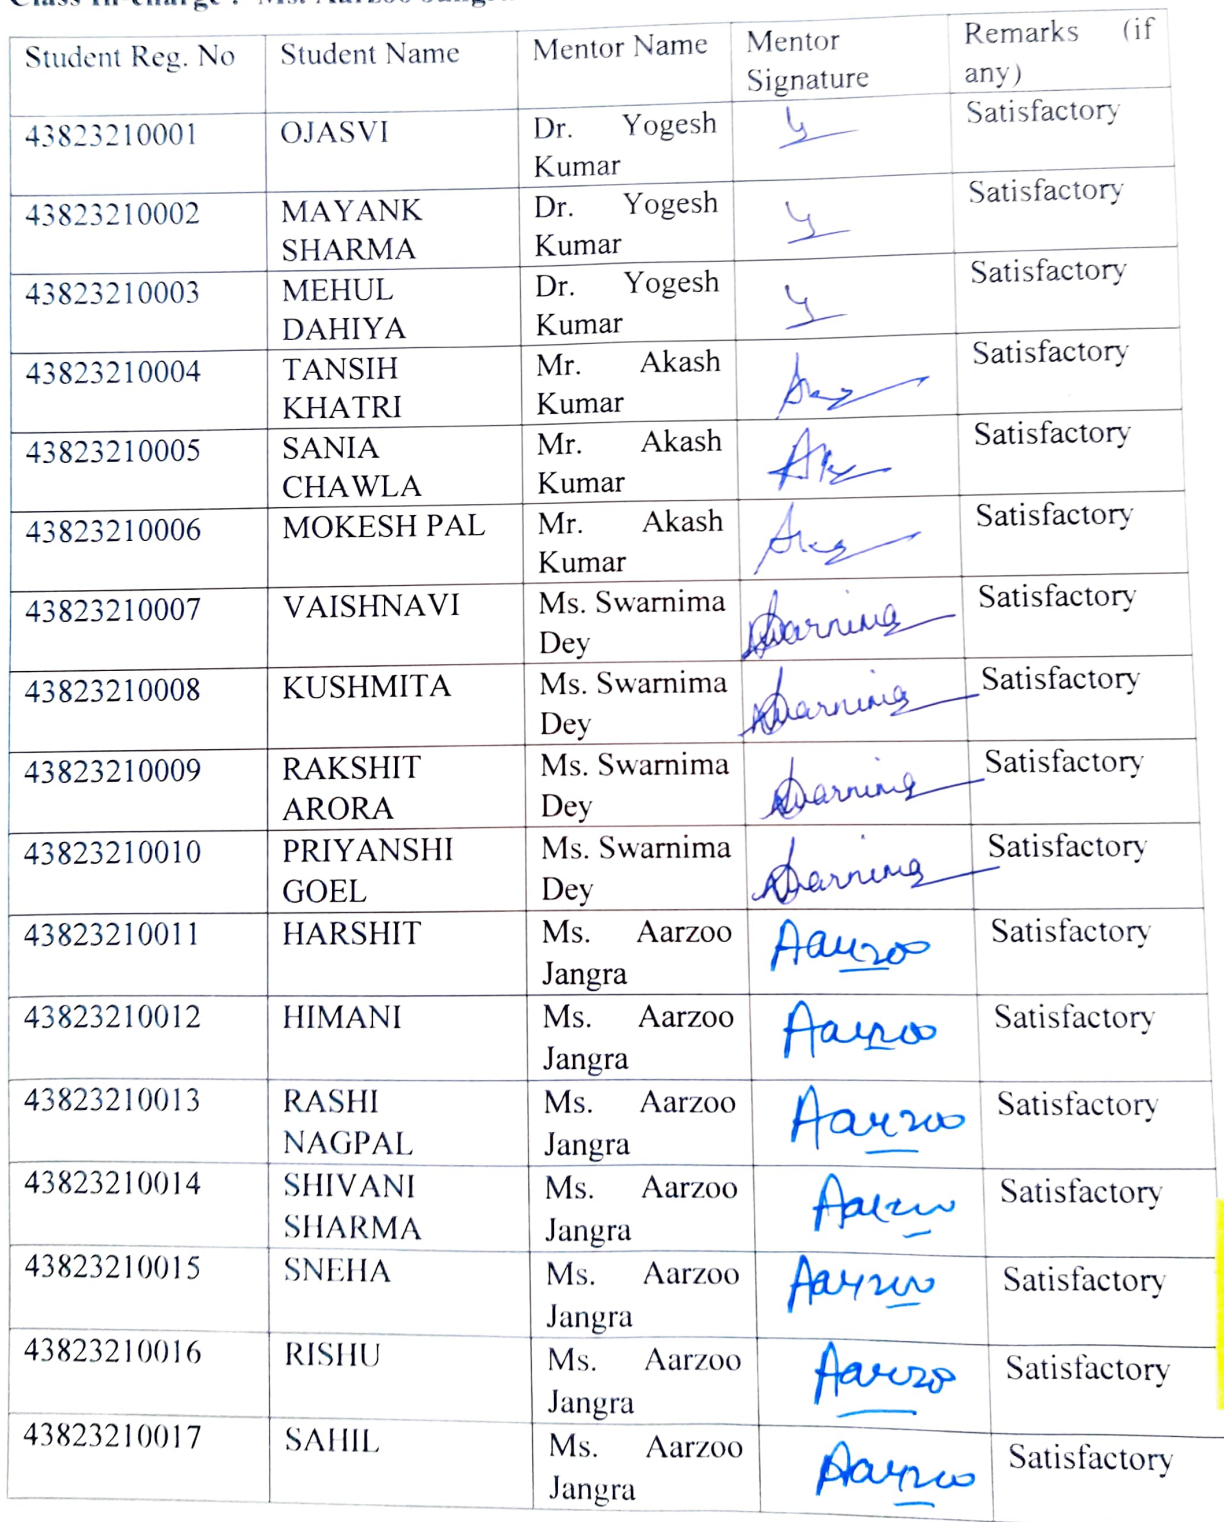 Class In-charge : Ms. Aarzoo Jangra
Student Reg. No Student Name Mentor Name Mentor Signature Remarks (if any)
43823210001 OJASVI Dr. Yogesh Kumar Y Satisfactory
43823210002 MAYANK SHARMA Dr. Yogesh Kumar Y Satisfactory
43823210003 MEHUL DAHIYA Dr. Yogesh Kumar Y Satisfactory
43823210004 TANSIH KHATRI Mr. Akash Kumar Satisfactory
43823210005 SANIA CHAWLA Mr. Akash Kumar Satisfactory
43823210006 MOKESH PAL Mr. Akash Kumar Satisfactory
43823210007 VAISHNAVI Ms. Swarnima Dey Swarnima Satisfactory
43823210008 KUSHMITA Ms. Swarnima Dey Swarnima Satisfactory
43823210009 RAKSHIT ARORA Ms. Swarnima Dey Swarnima Satisfactory
43823210010 PRIYANSHI GOEL Ms. Swarnima Dey Swarnima Satisfactory
43823210011 HARSHIT Ms. Aarzoo Jangra Aarzoo Satisfactory
43823210012 HIMANI Ms. Aarzoo Jangra Aarzoo Satisfactory
43823210013 RASHI NAGPAL Ms. Aarzoo Jangra Aarzoo Satisfactory
43823210014 SHIVANI SHARMA Ms. Aarzoo Jangra Aarzoo Satisfactory
43823210015 SNEHA Ms. Aarzoo Jangra Aarzoo Satisfactory
43823210016 RISHU Ms. Aarzoo Jangra Aarzoo Satisfactory
43823210017 SAHIL Ms. Aarzoo Jangra Aarzoo Satisfactory